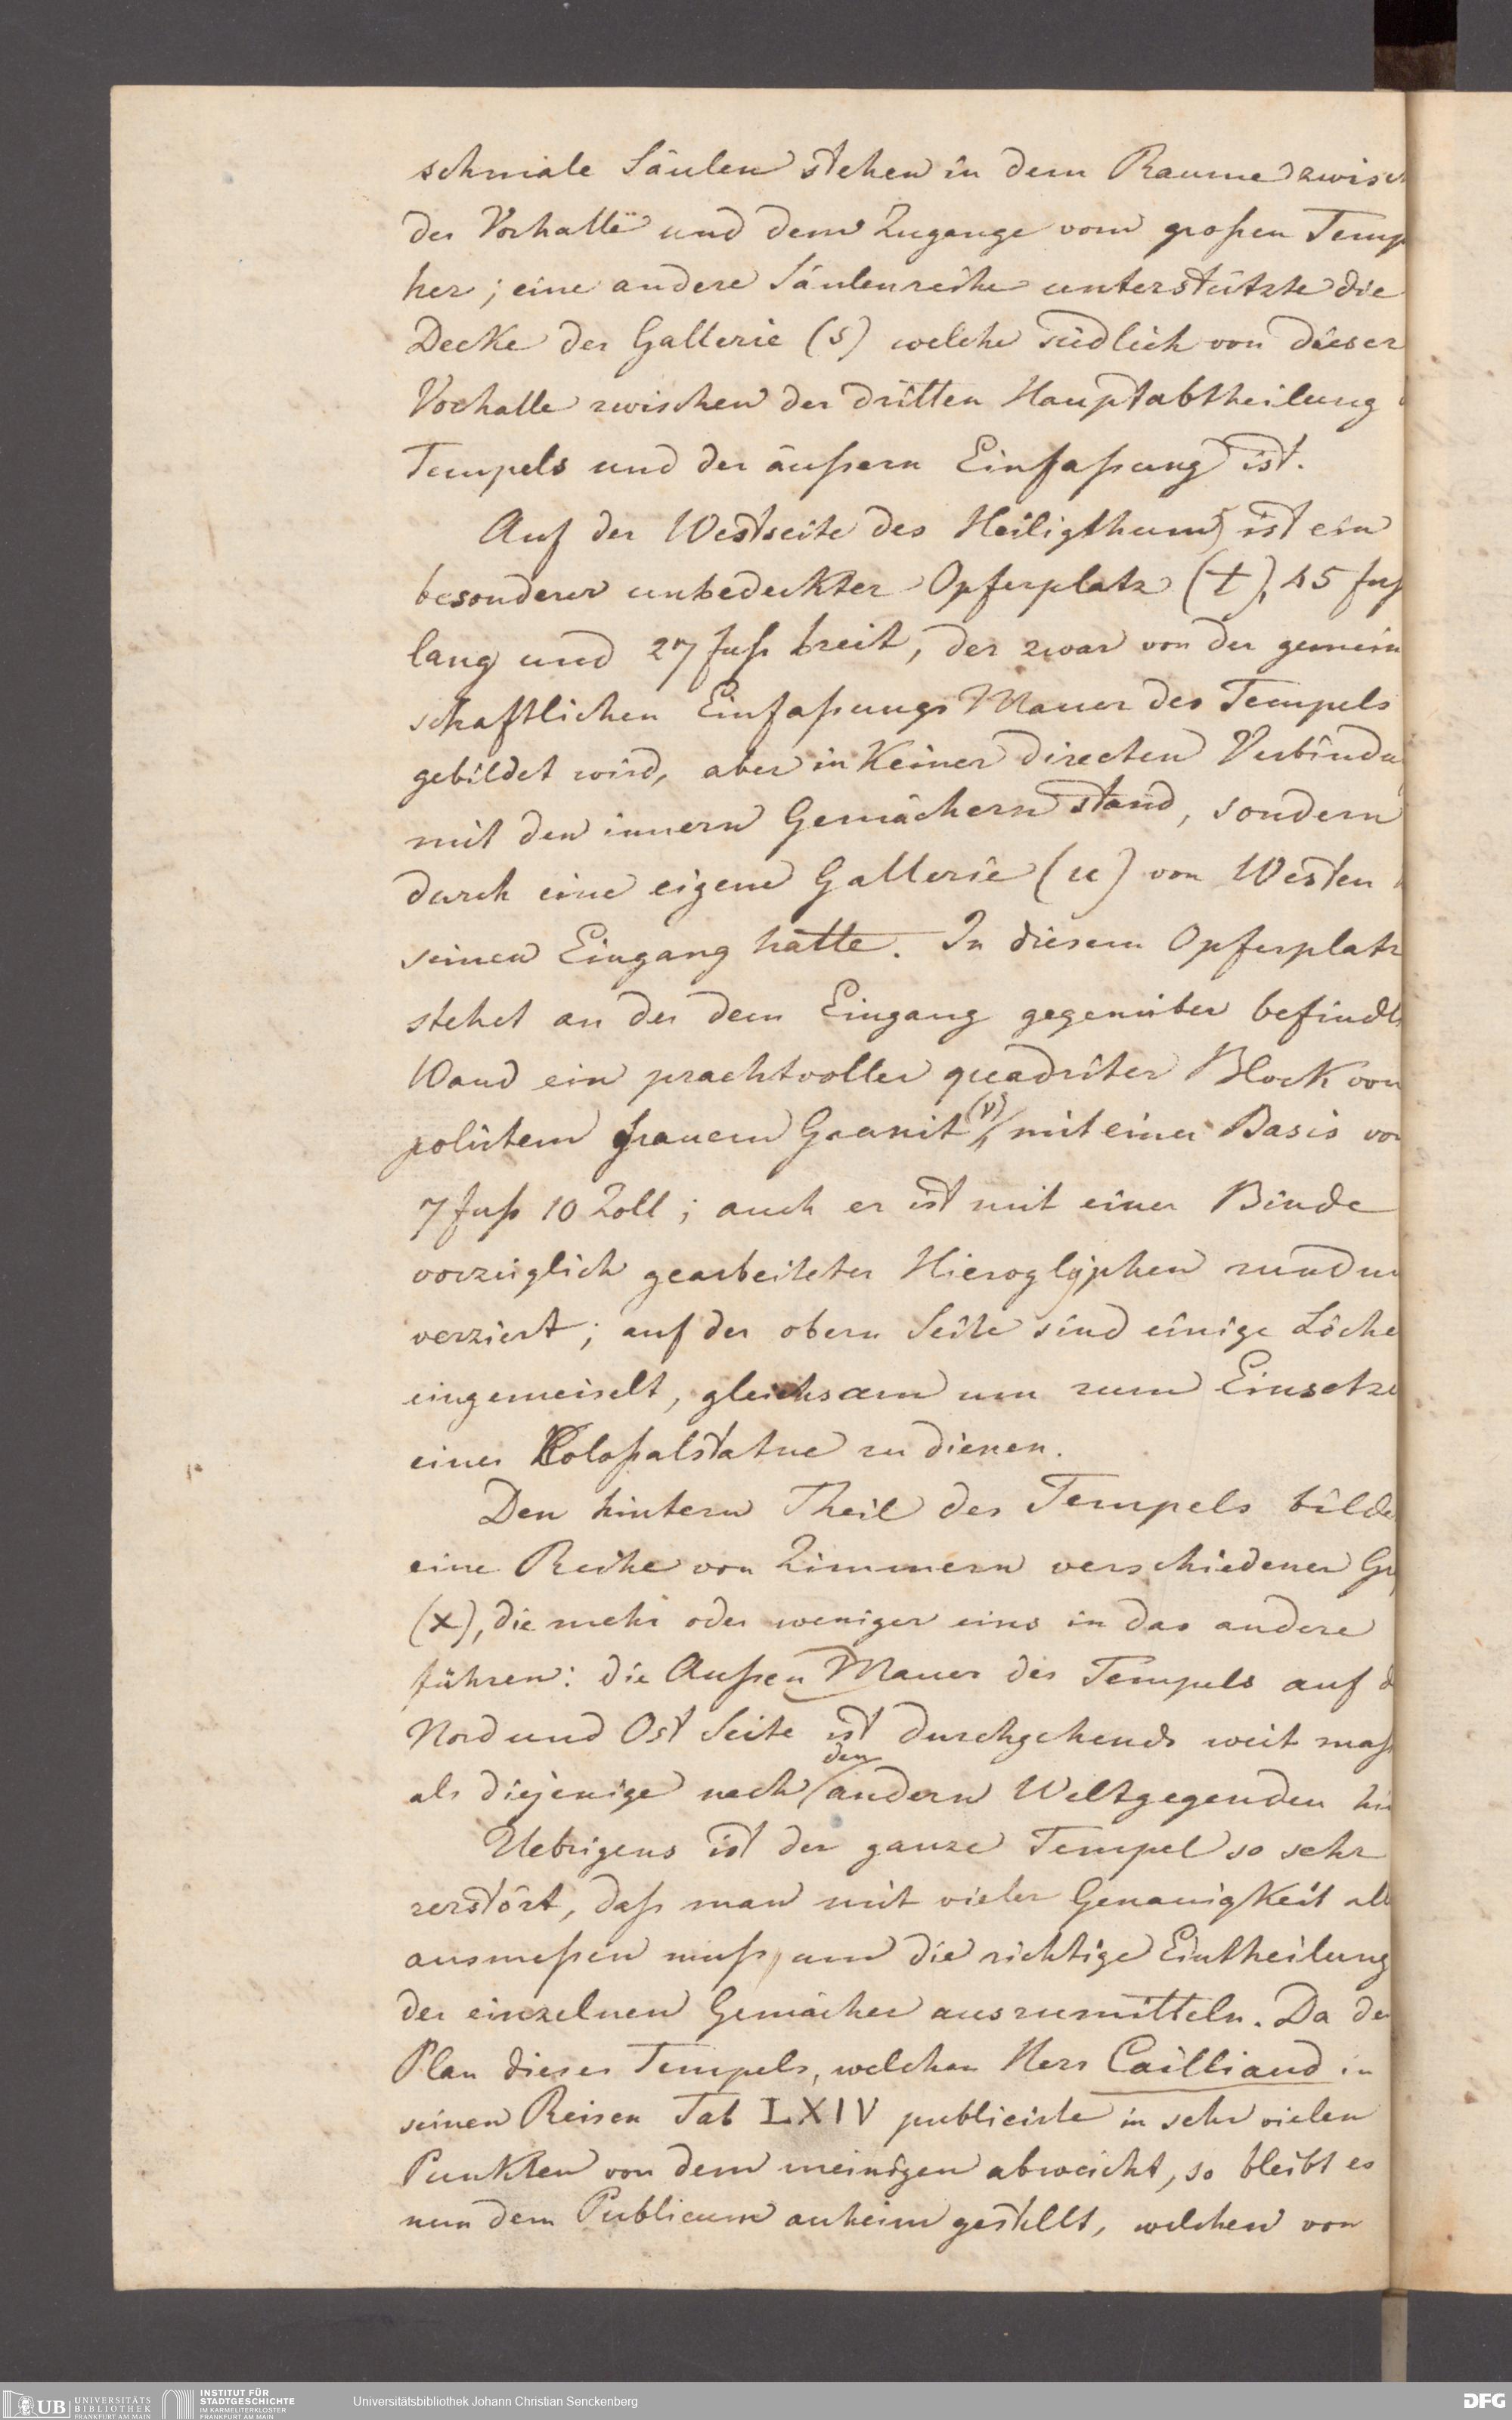 schmale Säulen stehen in dem Raume zwisch
der Vorhalle und dem Zugange vom großen Temp
her; eine andere Säulenreihe unterstützte die
Decke der Gallerie (s) welche südlich von dieser
Vorhalle zwischen der dritten Hauptabtheilung d
Tempels und der äußern Einfaßung ist.
Auf der Westseite des Heiligthums ist ein
besonderer unbedeckter Opferplatz (t), 45 fuß
lang und 27 fuß breit, der zwar von der gemein
schaftlichen Einfaßungs Mauer des Tempels
gebildet wird, aber in Keiner directen Verbindu
mit den innern Gemächern stand, sondern
durch eine eigene Gallerie (u) von Westen
seinen Eingang hatte. In diesem Opferplatz
stehet an der dem Eingang gegenüber befindl
Wand ein prachtvoller quadrirter Block von
polirtem grauem Granit (v) mit einer Basis von
7 fuß 10 Zoll; auch er ist mit einer Binde
vorzüglich gearbeiteter Hieroglyphen rundum
verziert; auf der obern Seite sind einige Löche
eingemeiselt, gleichsam um zum Einsetze
einer Koloßalstatue zu dienen.
Den hintern Theil des Tempels bilde
eine Reihe von Zimmern verschiedener Gr
(x), die mehr oder weniger eins in das andere
führen: die Außen Mauer des Tempels auf d
Nord und Ost Seite ist durchgehends weit maß
als diejenige nach den andern Weltgegenden hin
Uebrigens ist der ganze Tempel so sehr
zerstört, daß man mit vieler Genauigkeit all
ausmeßen muß, um die richtige Eintheilung
der einzelnen Gemächer auszumitteln. Da der
Plan dieses Tempels, welchen Herr Cailliaud in
seinen Reisen Tab LXIV publicirte in sehr vielen
Punkten von dem meinigen abweicht, so bleibt es
nun dem Publicum anheim gestellt, welchen von
UB UNIVERSITÄTS
BIBLIOTHEK
FRANKFURT AM MAIN
INSTITUT FÜR
STADTGESCHICHTE
IM KARMELITERKLOSTER
FRANKFURT AM MAIN
Universitätsbibliothek Johann Christian Senckenberg
DFG